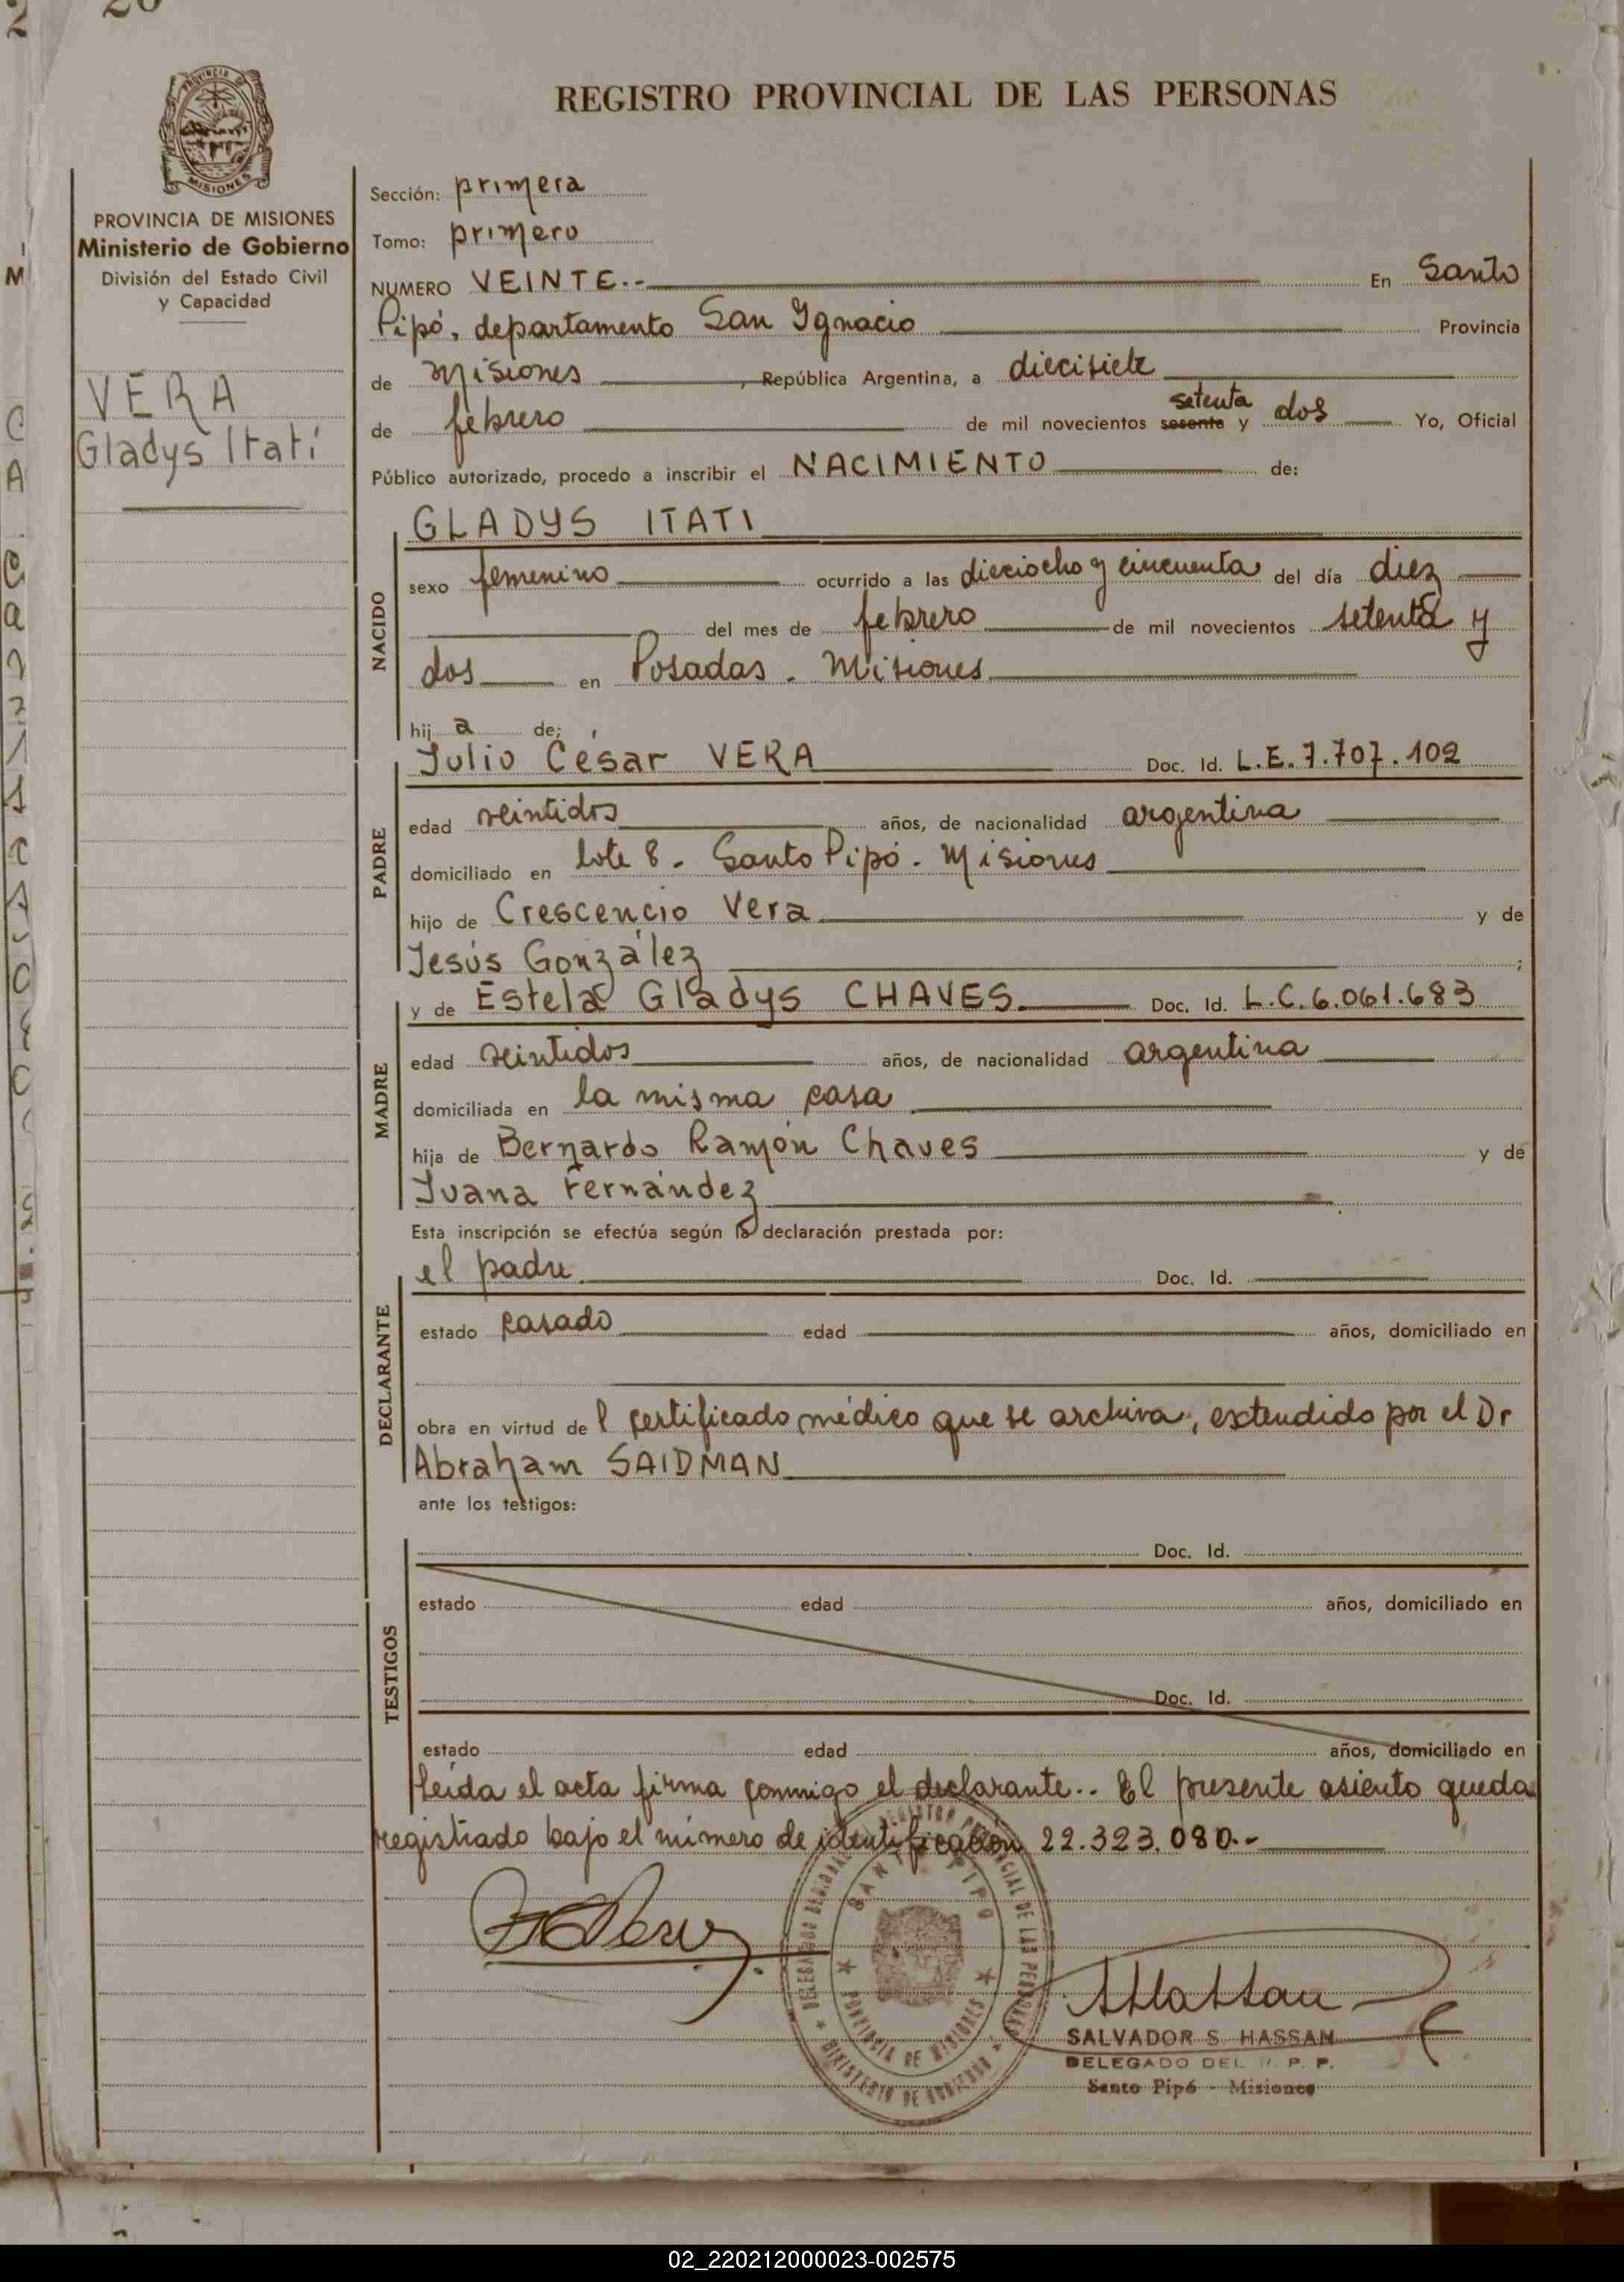 20
REGISTRO PROVINCIAL DE LAS PERSONAS
PROVINCIA DE MISIONES
PROVINCIA DE MISIONES
Ministerio de Gobierno
División del Estado Civil
y Capacidad
VERA
Gladys Itatí
Sección: primera
Tomo: primero
NUMERO VEINTE.- En Santo
Pipó, departamento San Ignacio Provincia
de Misiones, República Argentina, a diecisiete
de febrero de mil novecientos sesenta setenta y dos Yo, Oficial
Público autorizado, procedo a inscribir el NACIMIENTO de:
NACIDO
GLADYS ITATI
sexo femenino ocurrido a las dieciocho y cincuenta del día diez
del mes de febrero de mil novecientos setenta y
dos en Posadas. Misiones
hij a de;
PADRE
Julio César VERA Doc. Id. L.E. 7.707.102
edad veintidos años, de nacionalidad argentina
domiciliado en lote 8. Santo Pipó. Misiones
hijo de Crescencio Vera y de
Jesús González ;
MADRE
y de Estela Gladys CHAVES. Doc. Id. L.C. 6.061.683
edad veintidos años, de nacionalidad argentina
domiciliada en la misma casa
hija de Bernardo Ramón Chaves y de
Juana Fernández
Esta inscripción se efectúa según la declaración prestada por:
DECLARANTE
el padre Doc. Id.
estado casado edad años, domiciliado en
obra en virtud de l certificado médico que se archiva, extendido por el Dr
Abraham SAIDMAN
ante los testigos:
TESTIGOS
Doc. Id.
estado edad años, domiciliado en
Doc. Id.
estado edad años, domiciliado en
Leída el acta firma conmigo el declarante.. El presente asiento queda
registrado bajo el número de identificación 22.323.080.-
SANTO PIPO
PROVINCIA DE MISIONES
REGISTRO PROVINCIAL DE LAS PERSONAS
MINISTERIO DE GOBIERNO
SALVADOR S. HASSAN
DELEGADO DEL R. P. P.
Santo Pipó - Misiones
02_220212000023-002575